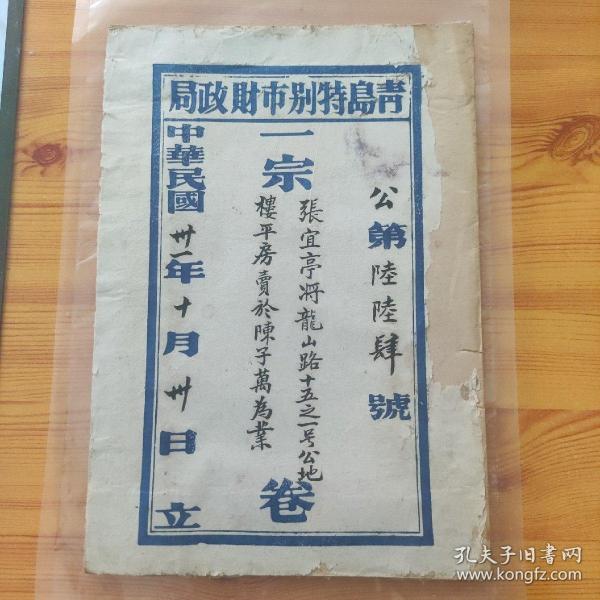 青島特别市財政局
公第陸陸肆號
一宗
張宜亭将龍山路十五之一号公地
樓平房賣於陳子萬為業
卷
中華民國卅一年十月卅日立
孔夫子旧書网
www.kongfz.com